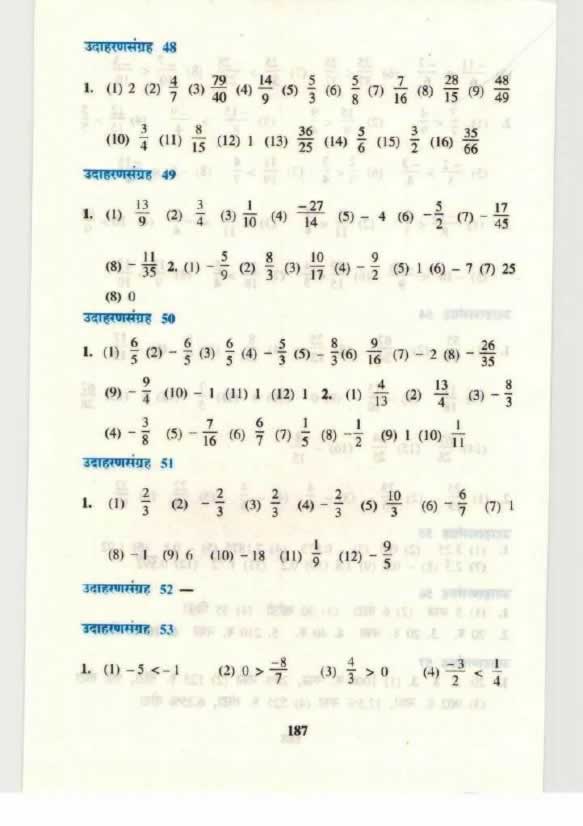 उदाहरणसंग्रह 48
1. (1) 2 (2) 4/7 (3) 79/40 (4) 14/9 (5) 5/3 (6) 5/8 (7) 7/16 (8) 28/15 (9) 48/49
(10) 3/4 (11) 8/15 (12) 1 (13) 36/25 (14) 5/6 (15) 3/2 (16) 35/66
उदाहरणसंग्रह 49
1. (1) 13/9 (2) 3/4 (3) 1/10 (4) -27/14 (5) - 4 (6) -5/2 (7) - 17/45
(8) - 11/35 2. (1) - 5/9 (2) 8/3 (3) 10/17 (4) - 9/2 (5) 1 (6) - 7 (7) 25
(8) 0
उदाहरणसंग्रह 50
1. (1) 6/5 (2) - 6/5 (3) 6/5 (4) - 5/3 (5) - 8/3 (6) 9/16 (7) - 2 (8) - 26/35
(9) - 9/4 (10) - 1 (11) 1 (12) 1 2. (1) 4/13 (2) 13/4 (3) - 8/3
(4) - 3/8 (5) - 7/16 (6) 6/7 (7) 1/5 (8) -1/2 (9) 1 (10) 1/11
उदाहरणसंग्रह 51
1. (1) 2/3 (2) - 2/3 (3) 2/3 (4) - 2/3 (5) 10/3 (6) - 6/7 (7) 1
(8) - 1 (9) 6 (10) - 18 (11) 1/9 (12) - 9/5
उदाहरणसंग्रह 52 —
उदाहरणसंग्रह 53
1. (1) - 5 < - 1 (2) 0 > -8/7 (3) 4/3 > 0 (4) -3/2 < 1/4
187